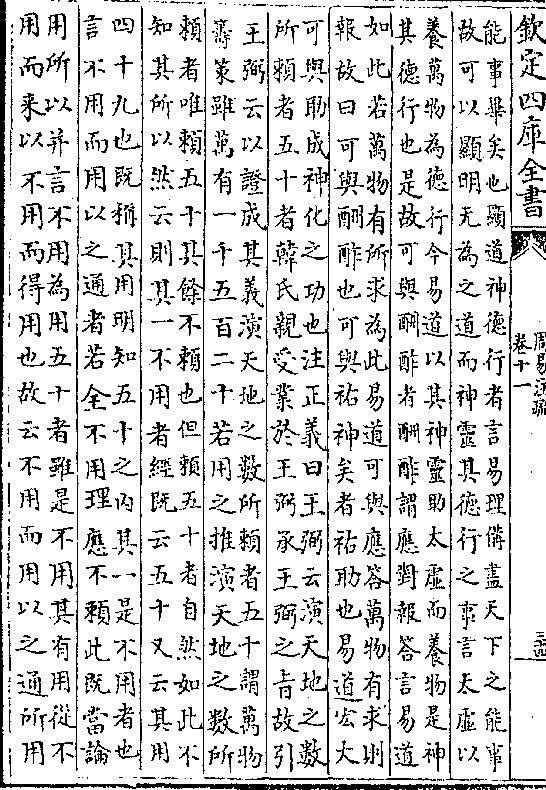 欽定四庫全書
周易注疏
卷十一
能事畢矣也顯道神德行者言易理備盡天下之能事
故可以顯明无為之道而神靈其德行之事言太虛以
養萬物為德行今易道以其神靈助太虛而養物是神
其德行也是故可與酬酢者酬酢謂應對報答言易道
如此若萬物有所求為此易道可與應答萬物有求則
報故曰可與酬酢也可與祐神矣者祐助也易道宏大
可與助成神化之功也注正義曰王弼云演天地之數
所頼者五十者韓氏親受業於王弼承王弼之旨故引
王弼云以證成其義演天地之數所頼者五十謂萬物
籌策雖萬有一千五百二十若用之推演天地之數所
頼者唯頼五十其餘不頼也但頼五十者自然如此不
知其所以然云則其一不用者經既云五十又云其用
四十九也既稱其用明知五十之内其一是不用者也
言不用而用以之通者若全不用理應不頼此既當論
用所以并言不用為用五十者雖是不用其有用從不
用而来以不用而得用也故云不用而用以之通所用